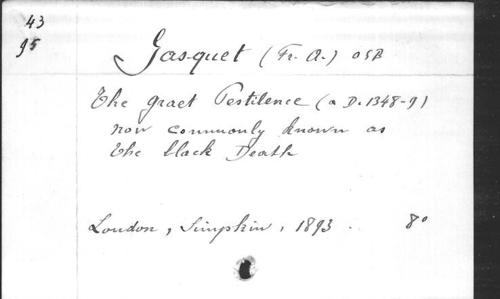 43
95
Gasquet (Fr. A.) OSB
The graet Pestilence (a D. 1348-9)
now commonly known as
the black Death
London, Simpkin, 1893. 8°